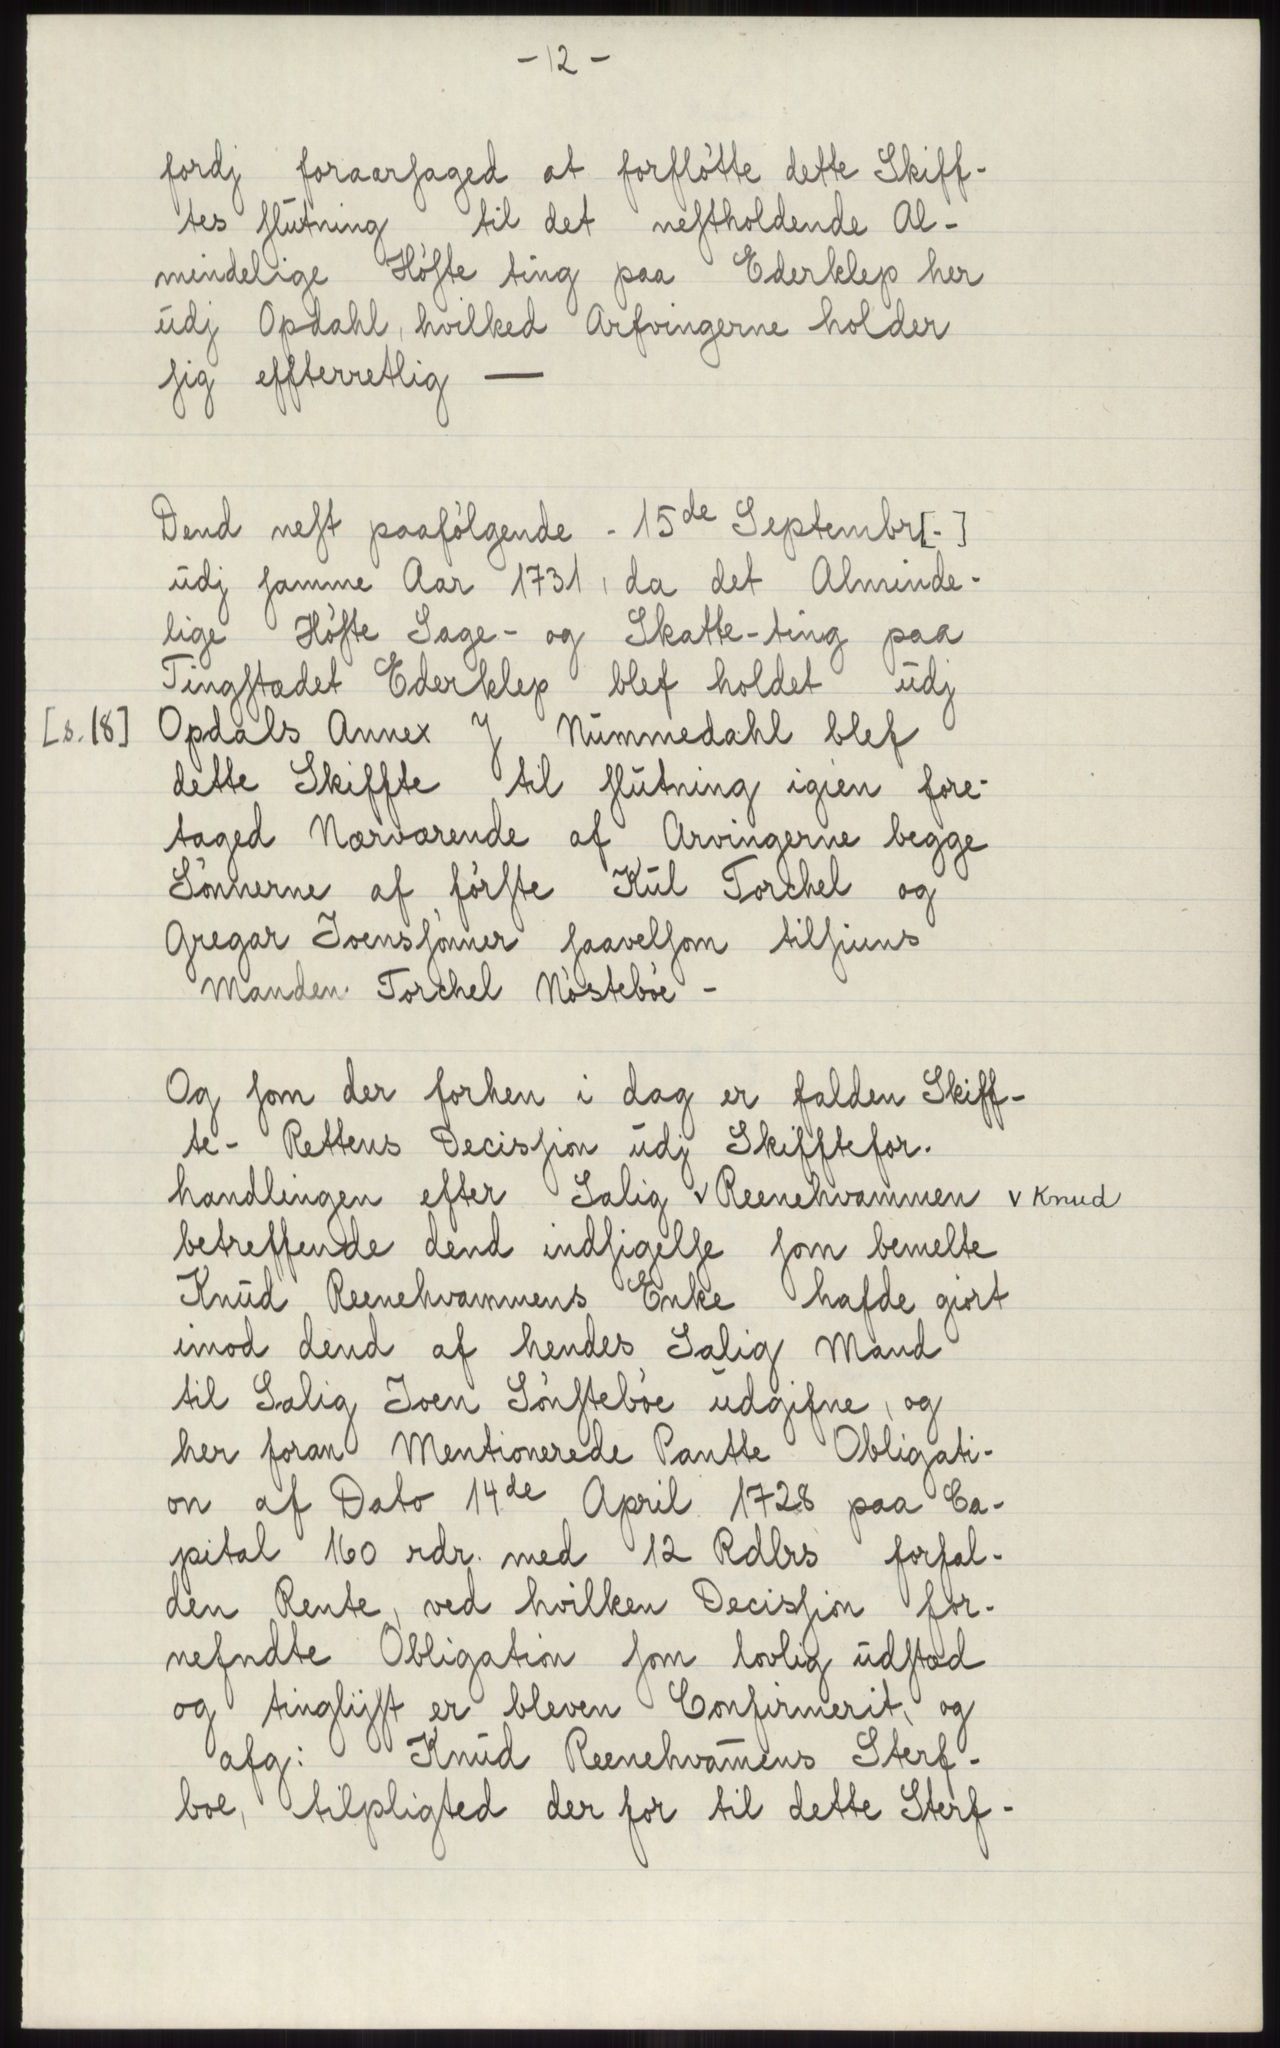 - 12 -
fordj foraarsaged at forflötte dette Skiff-
tes slütning til det nestholdende Al-
mindelige Höste ting paa Ederklep her
üdj Opdahl, hvilked Arfvingerne holder
sig effterretlig —
Dend nest paafölgende - 15de Septembr[-]
üdj samme Aar 1731, da det Alminde-
lige Höste Sage- og Skatte-ting paa
Tingstædet Ederklep blef holdet üdj
[s. 18] Opdals Annex J Nümmedahl blef
dette Skiffte til slütning igien fore-
taged Nærværende af Arvingerne begge
Sönnerne af förste Kül Torchel og
Gregar Joenssönner saavelsom tilsiuns
Manden Torchel Nösteböe -
Og som der forhen i dag er falden Skiff-
te- Rettens Decission üdj Skifftefor-
handlingen efter Salig v Reenehvammen v Knud
betreffende dend indsigelse som bemelte
Knüd Reenehvammens Enke hafde giort
imod dend af hendes Salig Mand
til Salig Joen Sönsteböe üdgifne, og
her foran Mentionerede Pantte Obligati-
on af Dato 14de April 1728 paa Ca-
pital 160 rdr. med 12 Rdlrs forfal-
den Rente, ved hvilken Decission for-
nefndte Obligation som lovlig üdstæd
og tinglÿst er bleven Confirmerit, og
afg: Knüd Reenehvam̄ens Sterf-
boe, tilpligted der for til dette Sterf-